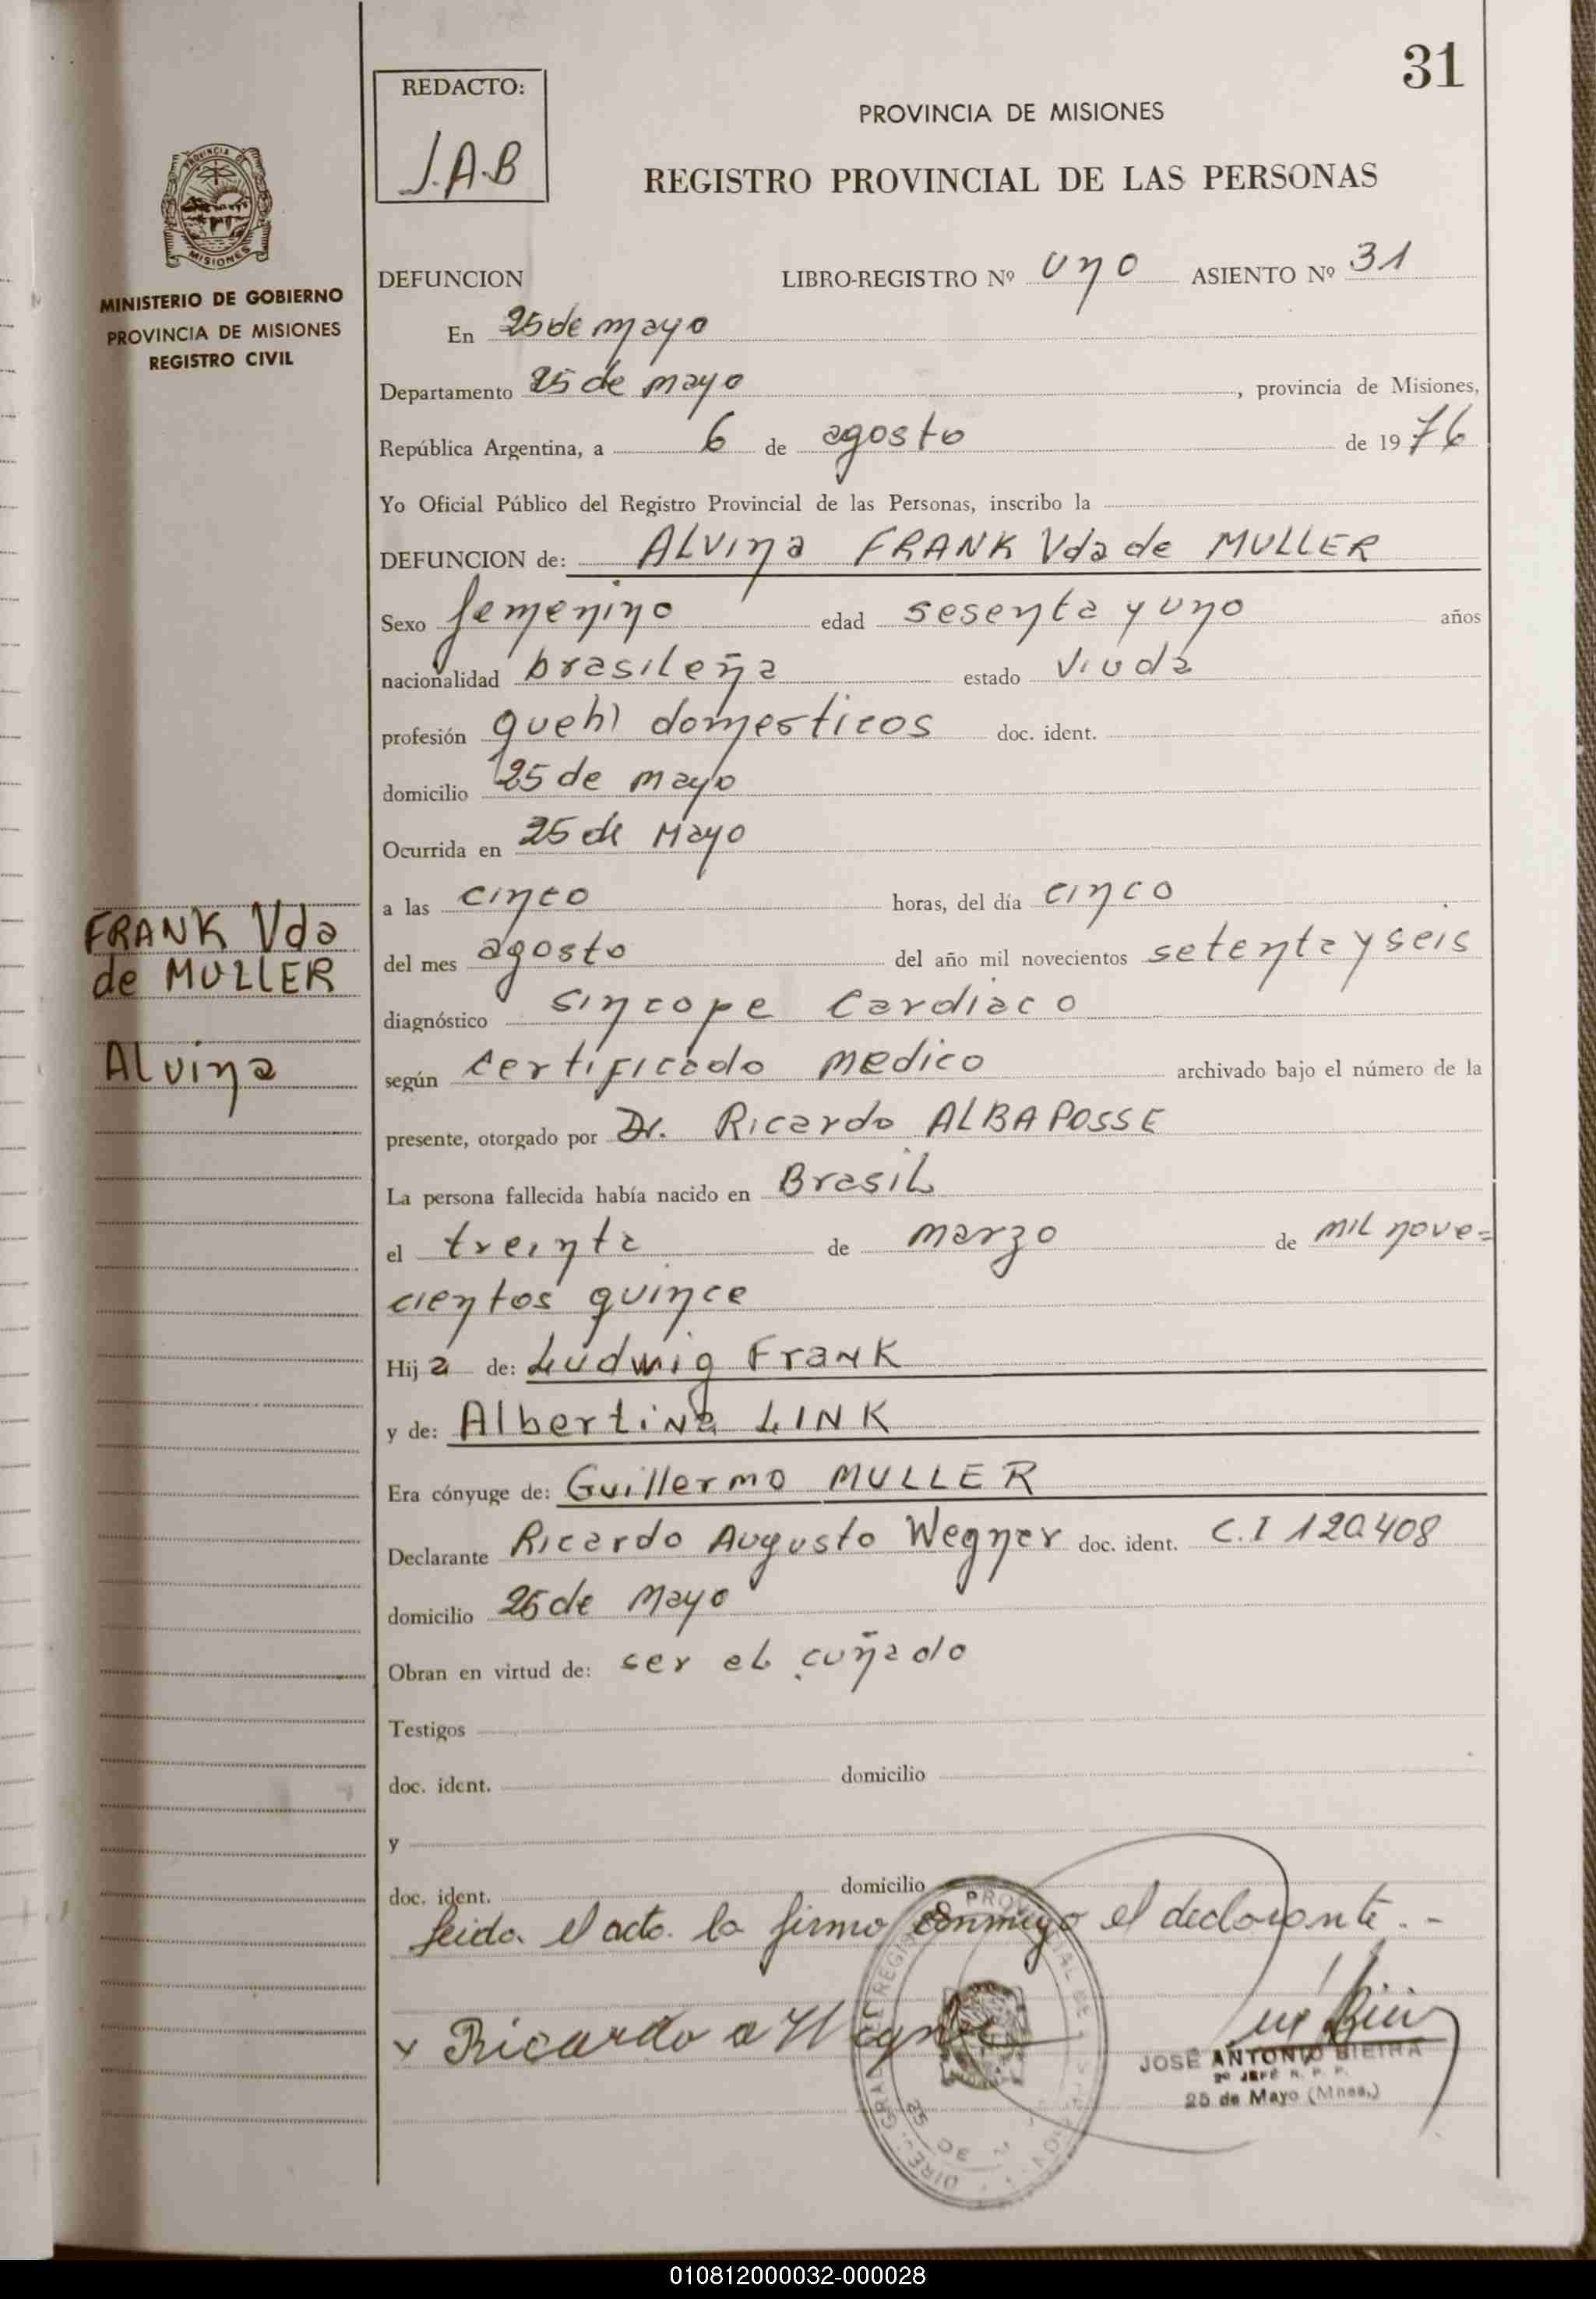 31
REDACTO:
J.A.B
PROVINCIA DE MISIONES
REGISTRO PROVINCIAL DE LAS PERSONAS
PROVINCIA DE
MISIONES
MINISTERIO DE GOBIERNO
PROVINCIA DE MISIONES
REGISTRO CIVIL
DEFUNCION LIBRO-REGISTRO Nº uno ASIENTO Nº 31
En 25 de mayo
Departamento 25 de mayo, provincia de Misiones,
República Argentina, a 6 de agosto de 1976
Yo Oficial Público del Registro Provincial de las Personas, inscribo la
DEFUNCION de: ALVINA FRANK Vda de MULLER
Sexo femenino edad sesenta y uno años
nacionalidad brasileña estado viuda
profesión queh) domesticos doc. ident.
domicilio 25 de mayo
Ocurrida en 25 de Mayo
a las cinco horas, del día cinco
del mes agosto del año mil novecientos setenta y seis
diagnóstico sincope cardiaco
según certificado medico archivado bajo el número de la
presente, otorgado por Dr. Ricardo ALBA POSSE
La persona fallecida había nacido en Brasil
el treinta de marzo de mil nove=
cientos quince
Hija de: Ludwig Frank
y de: Albertina LINK
Era cónyuge de: Guillermo MULLER
Declarante Ricardo Augusto Wegner doc. ident. C.I 120.408
domicilio 25 de Mayo
Obran en virtud de: ser el cuñado
Testigos
doc. ident. domicilio
y
doc. ident. domicilio
Leida el acta la firma conmigo el declarante.-
x Ricardo a Wegner
JOSÉ ANTONIO BIEIRA
2º JEFE R. P. P.
25 de Mayo (Mnes.)
FRANK Vda
de MULLER
Alvina
010812000032-000028